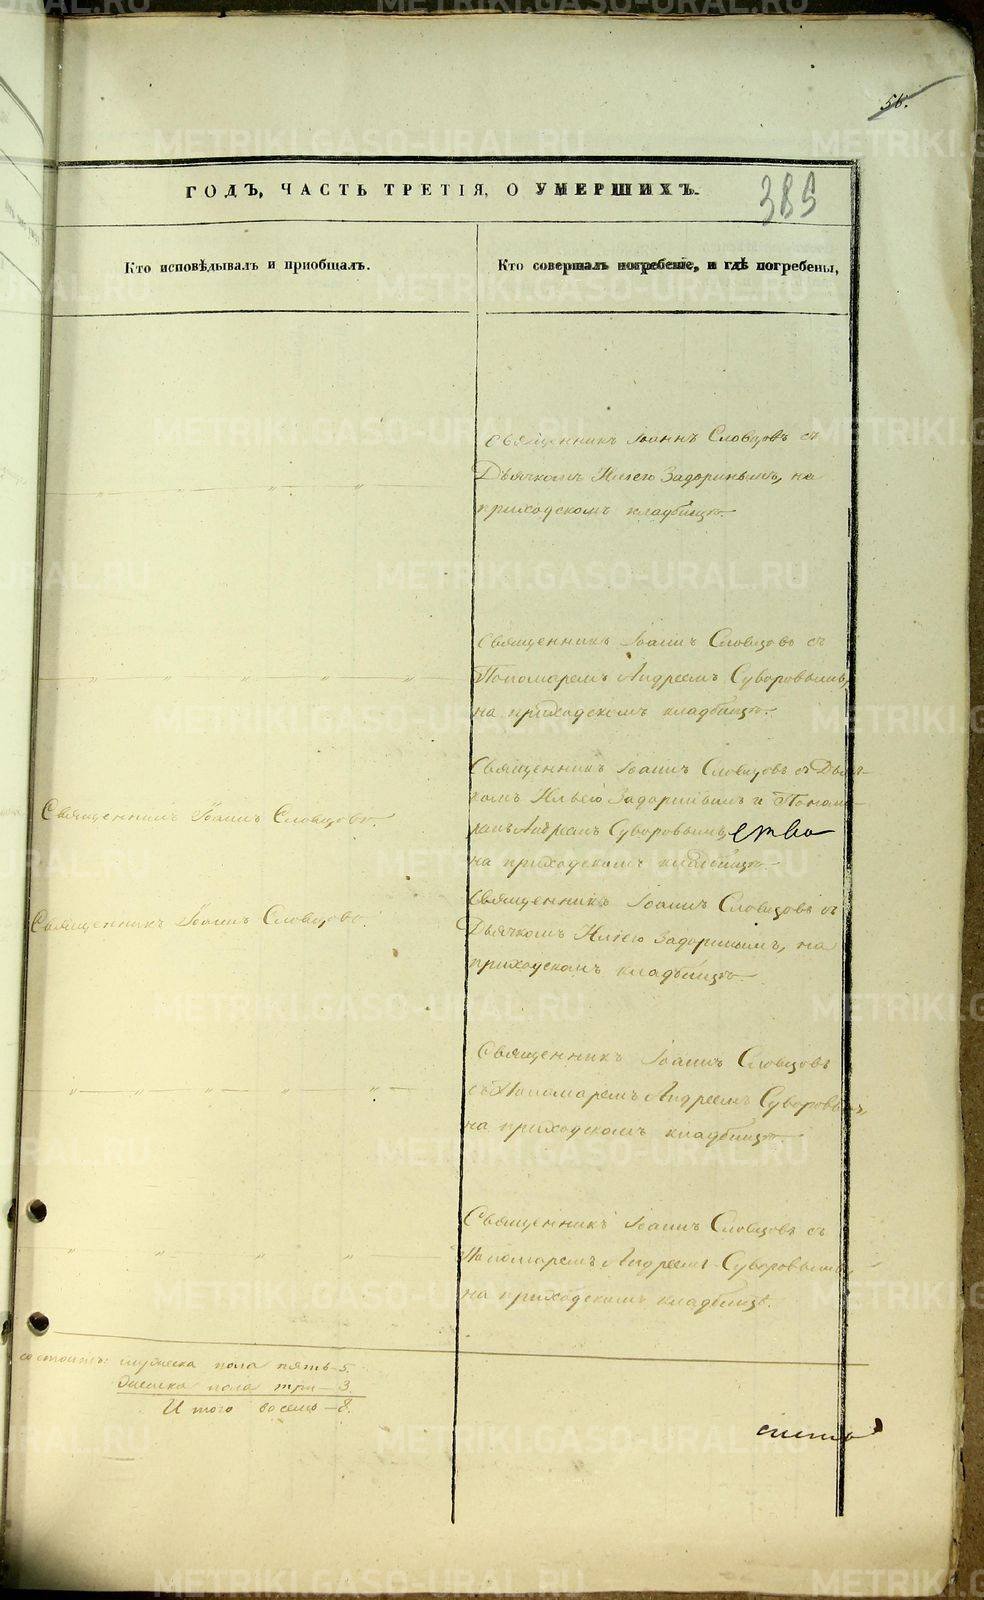 56.
385
ГОДЪ, ЧАСТЬ ТРЕТІЯ, О УМЕРШИХЪ.
Кто исповѣдывалъ и пріобщалъ.
Кто совершалъ погребеніе, и гдѣ погребены,
Священникъ Іоаннъ Словцовъ съ
Дьячкомъ Иліею Задоринымъ, на
приходскомъ кладбищѣ.
Священникъ Іоаннъ Словцовъ съ
Пономаремъ Андреемъ Суворовымъ,
на приходскомъ кладбищѣ.
Священникъ Іоаннъ Словцовъ.
Священникъ Іоаннъ Словцовъ съ Дьяч-
комъ Ильею Задоринымъ и Понома-
ремъ Андреемъ Суворовымъ
на приходскомъ кладбищѣ
Священникъ Іоаннъ Словцовъ.
Священникъ Іоаннъ Словцовъ съ
Дьячкомъ Иліею Задоринымъ, на
приходскомъ кладбищѣ.
Священникъ Іоаннъ Словцовъ
съ Пономаремъ Андреемъ Суворовымъ,
на приходскомъ кладбищѣ.
Священникъ Іоаннъ Словцовъ съ
Пономаремъ Андреемъ Суворовымъ,
на приходскомъ кладбищѣ.
состоитъ: мужеска пола пять—5.
Женска пола три—3.
И того восемь—8.
METRIKI.GASO-URAL.RU